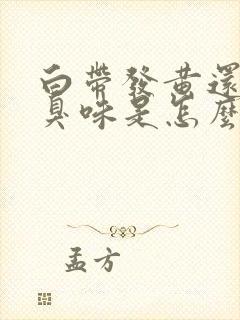 白帶發黃還
臭味是怎麼
孟方